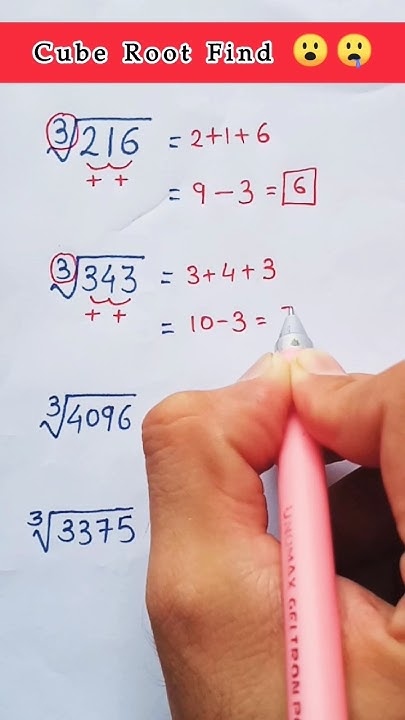 Cube Root Find 😮 🤤
³√216 = 2+1+6
+ +
= 9-3 = 6
³√343 = 3+4+3
+ +
= 10-3 =
³√4096
³√3375
UNOMAX GELTRON